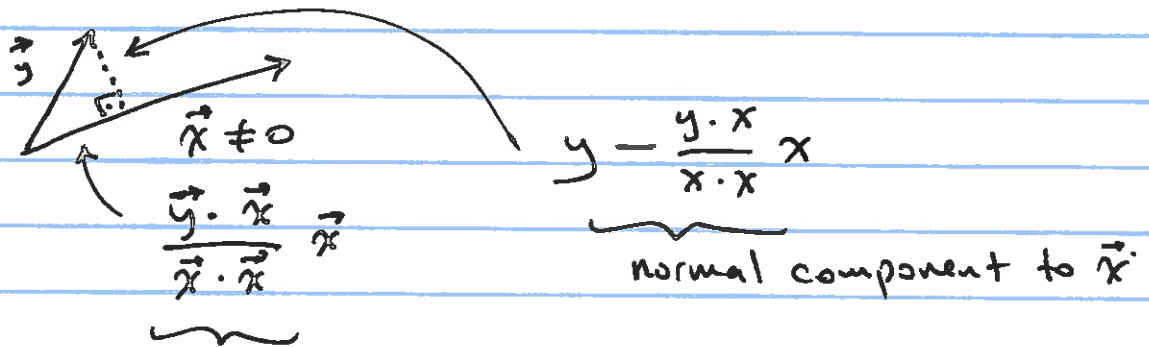 y⃗
x⃗ ≠ 0
y - (y · x)/(x · x) x
(y⃗ · x⃗)/(x⃗ · x⃗) x⃗
normal component to x⃗